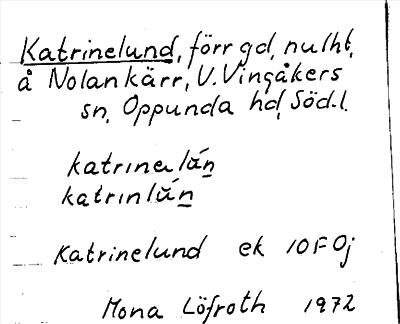 Katrinelund, förr gd, nu lht,
å Nolankärr, V. Vingåkers
sn, Oppunda hd, Söd.l.
katrinelún
katrinlún
Katrinelund ek 10F 0j
Mona Löfroth 1972